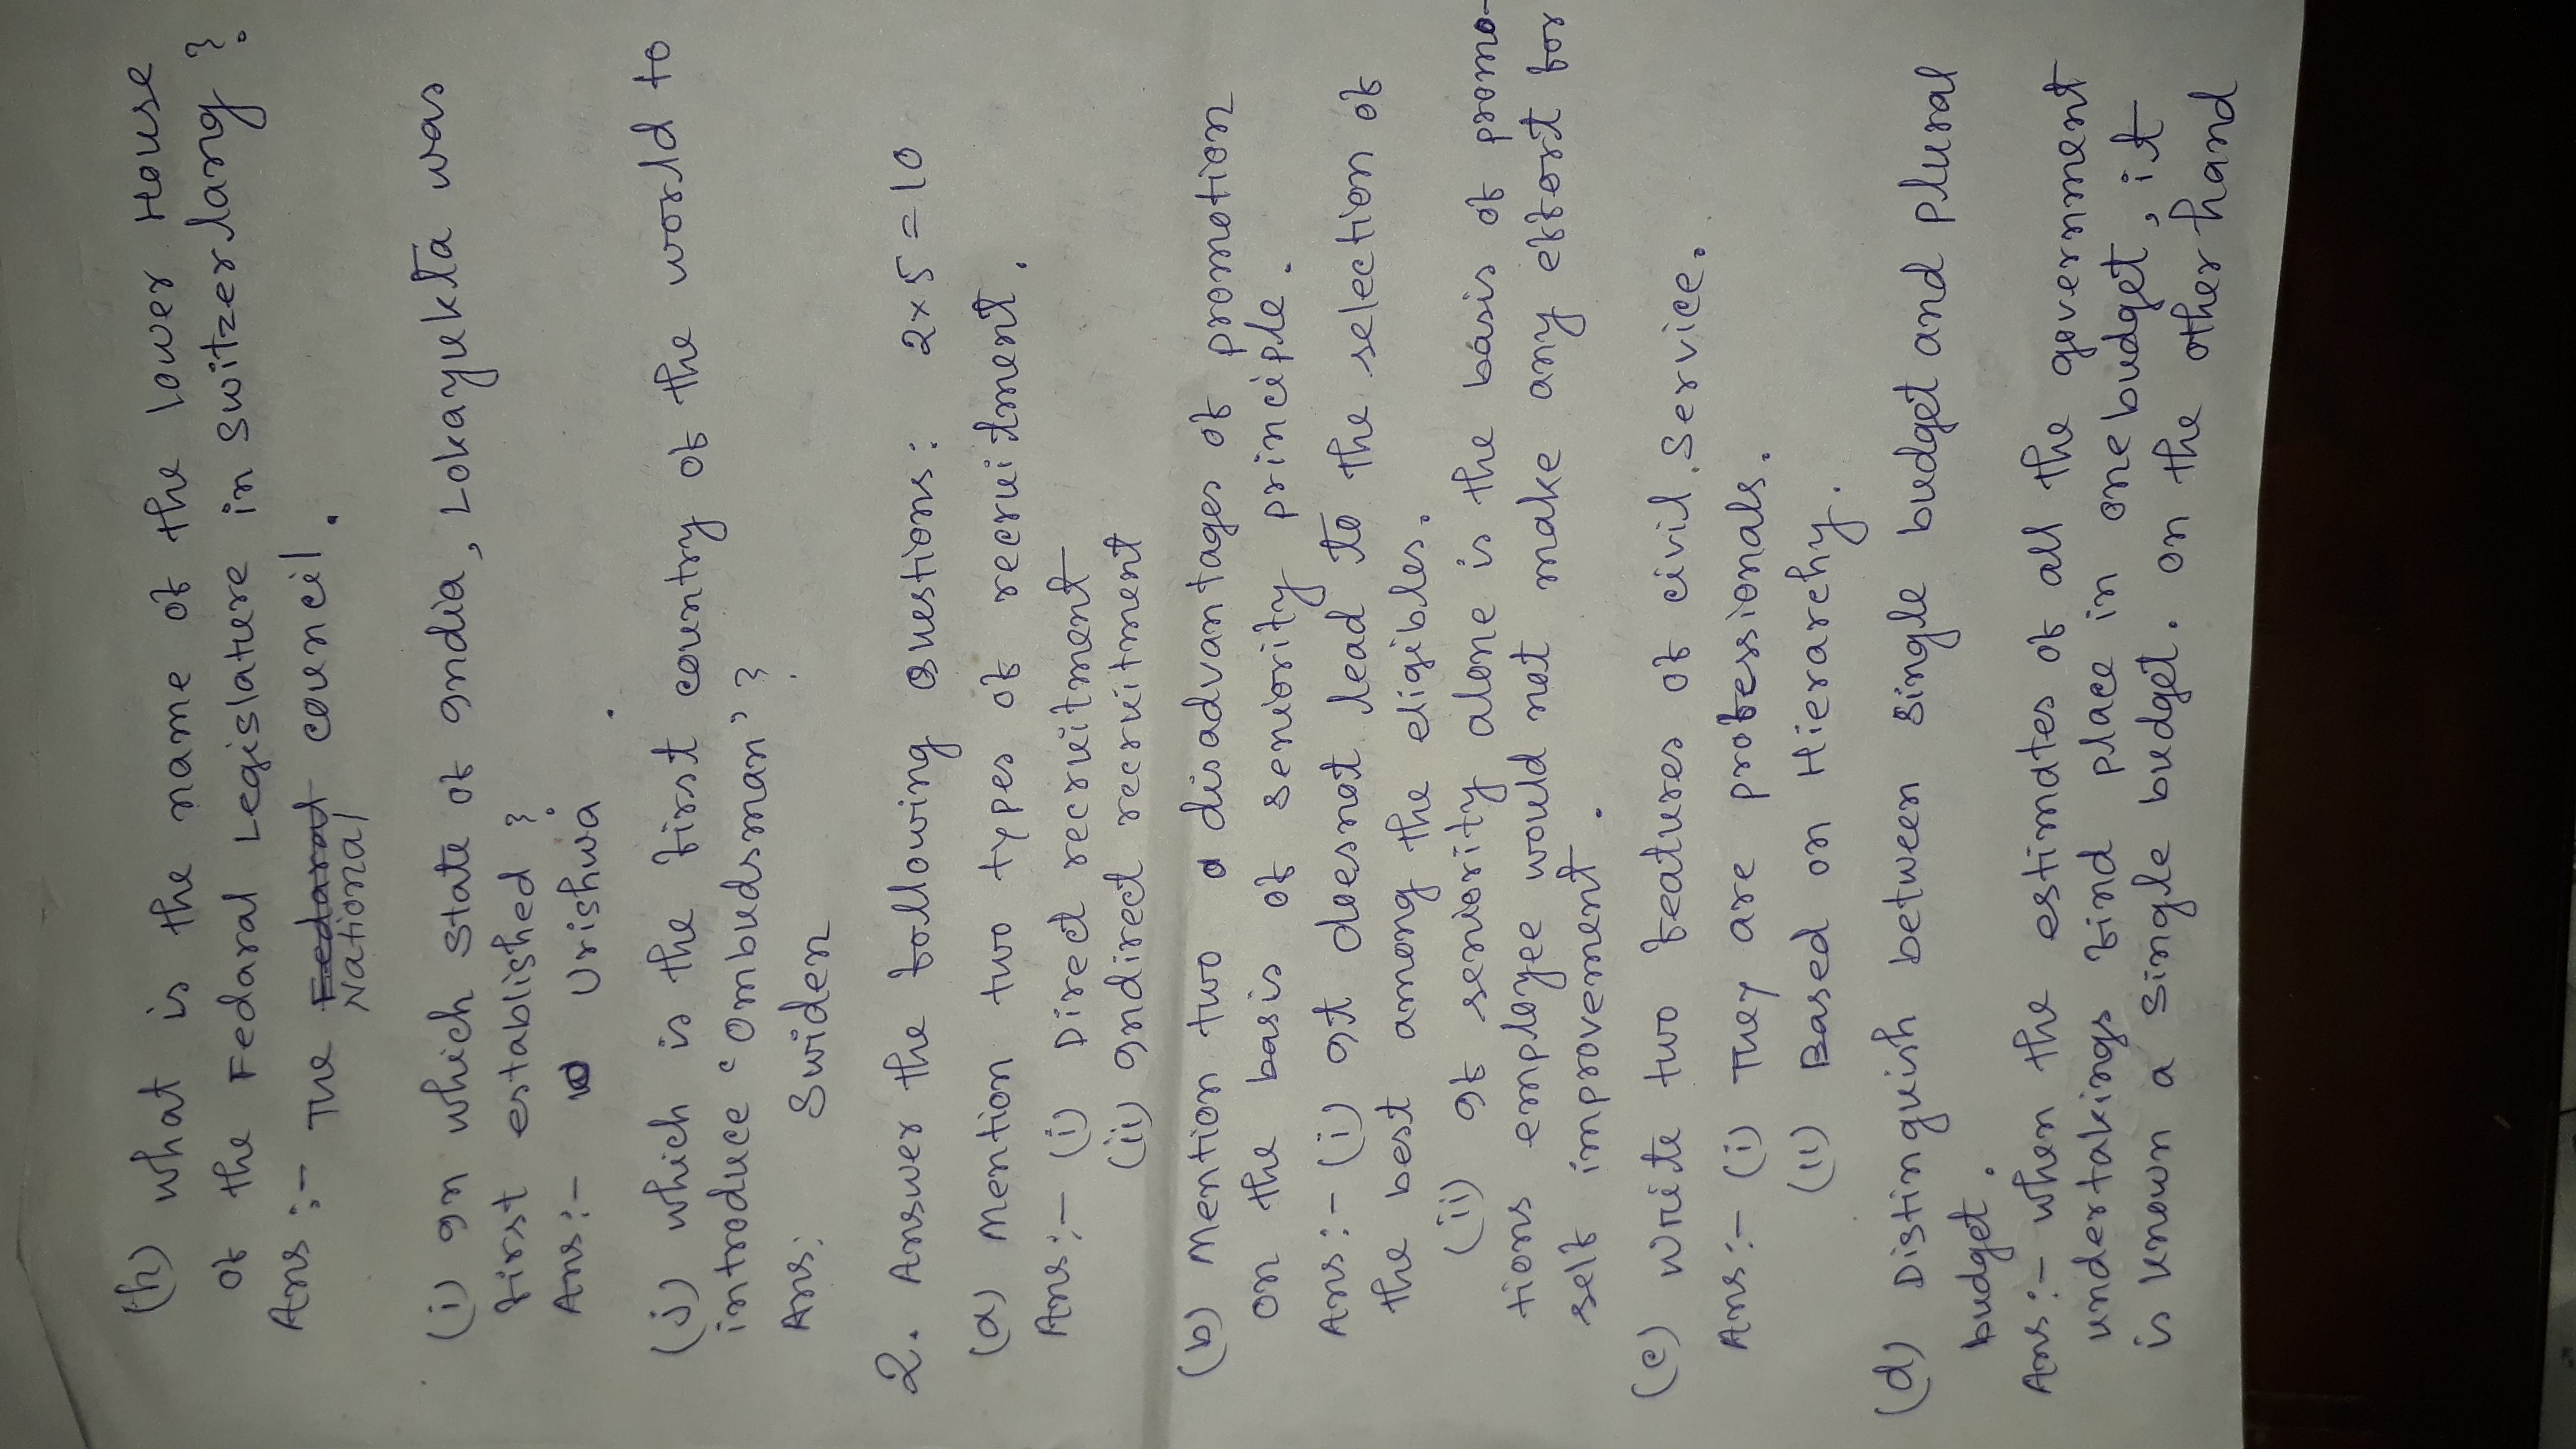 (h) what is the name of the lower House
of the Fedaral Legislature in Switzerlang?
Ans:- The Fedarat council.
National
(i) In which state of India, Lokayukta was
first established?
Ans:- Urishwa
(j) which is the first country of the world to
introduce 'Ombudsman'?
Ans: Swiden
2. Answer the following questions: 2×5=10
(a) Mention two types of recruitment.
Ans:- (i) Direct recruitment
(ii) Indirect recruitment
(b) Mention two disadvantages of promotion
on the basis of seniority principle.
Ans:- (i) It doesnot lead to the selection of
the best among the eligibles.
(ii) If seniority alone is the basis of promo-
tions employee would not make any effort for
self improvement.
(c) write two features of civil service.
Ans:- (i) They are professionals.
(ii) Based on Hierarchy.
(d) Distinguish between single budget and plural
budget.
Ans:- when the estimates of all the government
undertakings find place in one budget, it
is known a single budget. on the other hand